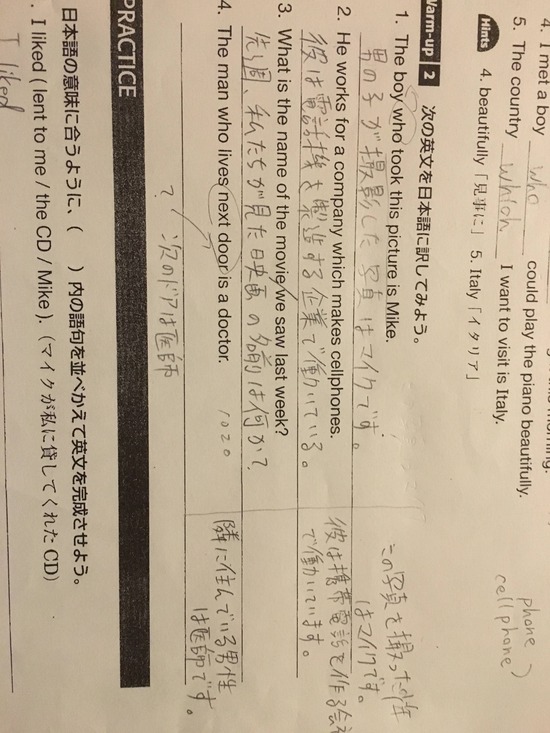 4. I met a boy who could play the piano beautifully.
5. The country which I want to visit is Italy.
Hints 4. beautifully「見事に」 5. Italy「イタリア」
phone
cellphone
Warm-up 2 次の英文を日本語に訳してみよう。
1. The boy who took this picture is Mike.
男の子が撮影した写真はマイクです。
この写真を撮った少年
はマイクです。
2. He works for a company which makes cellphones.
彼は電話機を製造する企業で働いている。
彼は携帯電話を作る会
で働いています。
3. What is the name of the movie we saw last week?
先週、私たちが見た映画の名前は何か?
4. The man who lives next door is a doctor.
1020
? 次のドアは医師
隣に住んでいる男性
は医師です。
PRACTICE
日本語の意味に合うように、( )内の語句を並べかえて英文を完成させよう。
. I liked ( lent to me / the CD / Mike ). (マイクが私に貸してくれた CD)
I liked